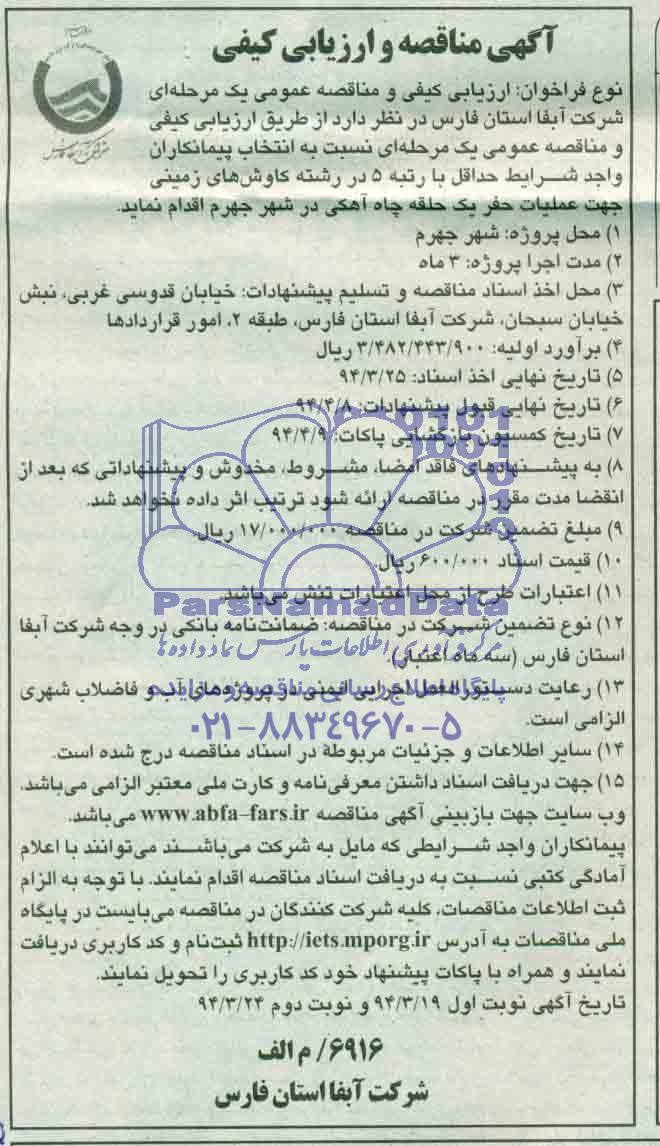 آگهی مناقصه و ارزیابی کیفی
نوع فراخوان: ارزیابی کیفی و مناقصه عمومی یک مرحله‌ای
شرکت آبفا استان فارس در نظر دارد از طریق ارزیابی کیفی
و مناقصه عمومی یک مرحله‌ای نسبت به انتخاب پیمانکاران
واجد شرایط حداقل با رتبه ۵ در رشته کاوش‌های زمینی
جهت عملیات حفر یک حلقه چاه آهکی در شهر جهرم اقدام نماید.
۱) محل پروژه: شهر جهرم
۲) مدت اجرا پروژه: ۳ ماه
۳) محل اخذ اسناد مناقصه و تسلیم پیشنهادات: خیابان قدوسی غربی، نبش
خیابان سبحان، شرکت آبفا استان فارس، طبقه ۲، امور قراردادها
۴) برآورد اولیه: ۳/۴۸۲/۴۴۳/۹۰۰ ریال
۵) تاریخ نهایی اخذ اسناد: ۹۴/۳/۲۵
۶) تاریخ نهایی قبول پیشنهادات: ۹۴/۴/۸
۷) تاریخ کمسیون بازگشایی پاکات: ۹۴/۴/۹
۸) به پیشنهادهای فاقد امضا، مشروط، مخدوش و پیشنهاداتی که بعد از
انقضا مدت مقرر در مناقصه ارائه شود ترتیب اثر داده نخواهد شد.
۹) مبلغ تضمین شرکت در مناقصه ۱۷/۰۰۰/۰۰۰ ریال.
۱۰) قیمت اسناد ۶۰۰/۰۰۰ ریال.
۱۱) اعتبارات طرح از محل اعتبارات تنش می‌باشد.
ParsNamadData
۱۲) نوع تضمین شرکت در مناقصه: ضمانت‌نامه بانکی در وجه شرکت آبفا
مرکز فرآوری اطلاعات پارس نماد داده‌ها
استان فارس (سه ماه اعتبار).
پایگاه اطلاع رسانی مناقصه و مزایده
۱۳) رعایت دستورالعمل اجرایی ایمنی در پروژه‌های آب و فاضلاب شهری
الزامی است.
۰۲۱-۸۸۳۴۹۶۷۰-۵
۱۴) سایر اطلاعات و جزئیات مربوطة در اسناد مناقصه درج شده است.
۱۵) جهت دریافت اسناد داشتن معرفی‌نامه و کارت ملی معتبر الزامی می‌باشد.
وب سایت جهت بازبینی آگهی مناقصه www.abfa-fars.ir می‌باشد.
پیمانکاران واجد شرایطی که مایل به شرکت می‌باشند می‌توانند با اعلام
آمادگی کتبی نسبت به دریافت اسناد مناقصه اقدام نمایند. با توجه به الزام
ثبت اطلاعات مناقصات، کلیه شرکت کنندگان در مناقصه می‌بایست در پایگاه
ملی مناقصات به آدرس http://iets.mporg.ir ثبت‌نام و کد کاربری دریافت
نمایند و همراه با پاکات پیشنهاد خود کد کاربری را تحویل نمایند.
تاریخ آگهی نوبت اول ۹۴/۳/۱۹ و نوبت دوم ۹۴/۳/۲۴
۶۹۱۶/ م الف
شرکت آبفا استان فارس